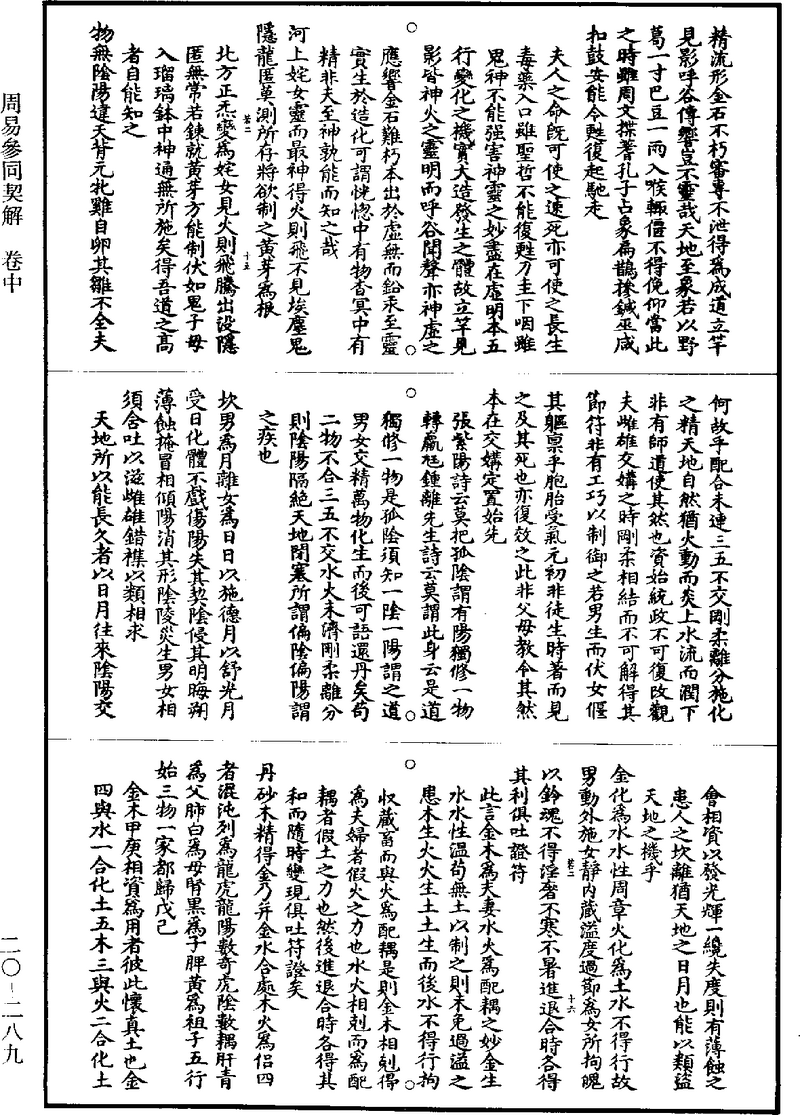 周易參同契解　卷中
二〇－二八九
精流形金石不朽審專不泄得為成道立竿
見影呼谷傳響豈不靈哉天地至象若以野
葛一寸巴豆一兩入喉輒僵不得俛仰當此
之時雖周文揲蓍孔子占象扁鵲操鍼巫咸
扣鼓安能令甦復起馳走
夫人之命既可使之速死亦可使之長生
毒藥入口雖聖哲不能復甦刀圭下咽雖
鬼神不能强害神靈之妙盡在虛明本五
行變化之機實大造發生之體故立竿見
影皆神火之靈明而呼谷聞聲亦神虛之
應響金石難朽本出於虛無而鉛汞至靈
實生於造化可謂恍惚中有物杳冥中有
精非夫至神孰能而知之哉
河上姹女靈而最神得火則飛不見埃塵鬼
隱龍匿莫測所存將欲制之黃芽為根
北方正炁變為姹女見火則飛騰出沒隱
匿無常若鍊就黃芽方能制伏如鬼子母
入瑠璃鉢中神通無所施矣得吾道之高
者自能知之
物無陰陽違天背元牝雞自卵其雛不全夫
何故乎配合未連三五不交剛柔離分施化
之精天地自然猶火動而炎上水流而潤下
非有師道使其然也資始統政不可復改觀
夫雌雄交媾之時剛柔相結而不可解得其
節符非有工巧以制御之若男生而伏女偃
其軀稟乎胞胎受氣元初非徒生時著而見
之及其死也亦復效之此非父母教令其然
本在交媾定置始先
張紫陽詩云莫把孤陰謂有陽獨修一物
轉羸尫鍾離先生詩云莫謂此身云是道
獨修一物是孤陰須知一陰一陽謂之道
男女交精萬物化生而後可語還丹矣苟
二物不合三五不交水火未濟剛柔離分
則陰陽隔絕天地閉塞所謂偏陰偏陽謂
之疾也
坎男為月離女為日日以施德月以舒光月
受日化體不虧傷陽失其契陰侵其明晦朔
薄蝕掩冒相傾陽消其形陰陵災生男女相
須含吐以滋雌雄錯襍以類相求
天地所以能長久者以日月往來陰陽交
會相資以發光輝一纔失度則有薄蝕之
患人之坎離猶天地之日月也能以類盜
天地之機乎
金化為水水性周章火化為土水不得行故
男動外施女靜內藏溢度過節為女所拘魄
以鈐魂不得淫奢不寒不暑進退合時各得
其利俱吐證符
此言金木為夫妻水火為配耦之妙金生
水水性溫苟無土以制之則未免過溢之
患木生火火生土土生而後水不得行拘
收藏畜而與火為配耦是則金木相剋得
為夫婦者假火之力也水火相剋而為配
耦者假土之力也然後進退合時各得其
和而隨時變現俱吐符證矣
丹砂木精得金乃并金水合處木火為侶四
者混沌列為龍虎龍陽數奇虎陰數耦肝青
為父肺白為母腎黑為子脾黃為祖子五行
始三物一家都歸戊己
金木甲庚相資為用者彼此懷真土也金
四與水一合化土五木三與火二合化土